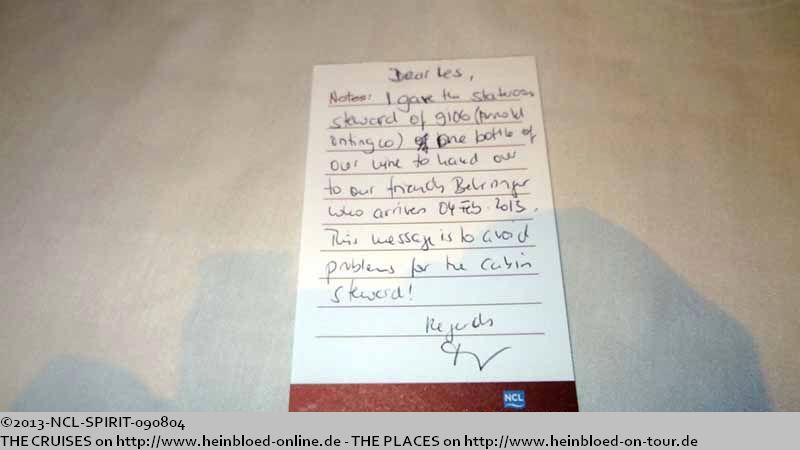 Dear Les,
Notes: I gave the stateroom
steward of 9106 (Arnold
Ontingco) one bottle of
our wine to hand over
to our friends Behringer
who arrives 04 Feb. 2013.
This message is to avoid
problems for the cabin
steward!
Regards
NCL
©2013-NCL-SPIRIT-090804
THE CRUISES on http://www.heinbloed-online.de - THE PLACES on http://www.heinbloed-on-tour.de